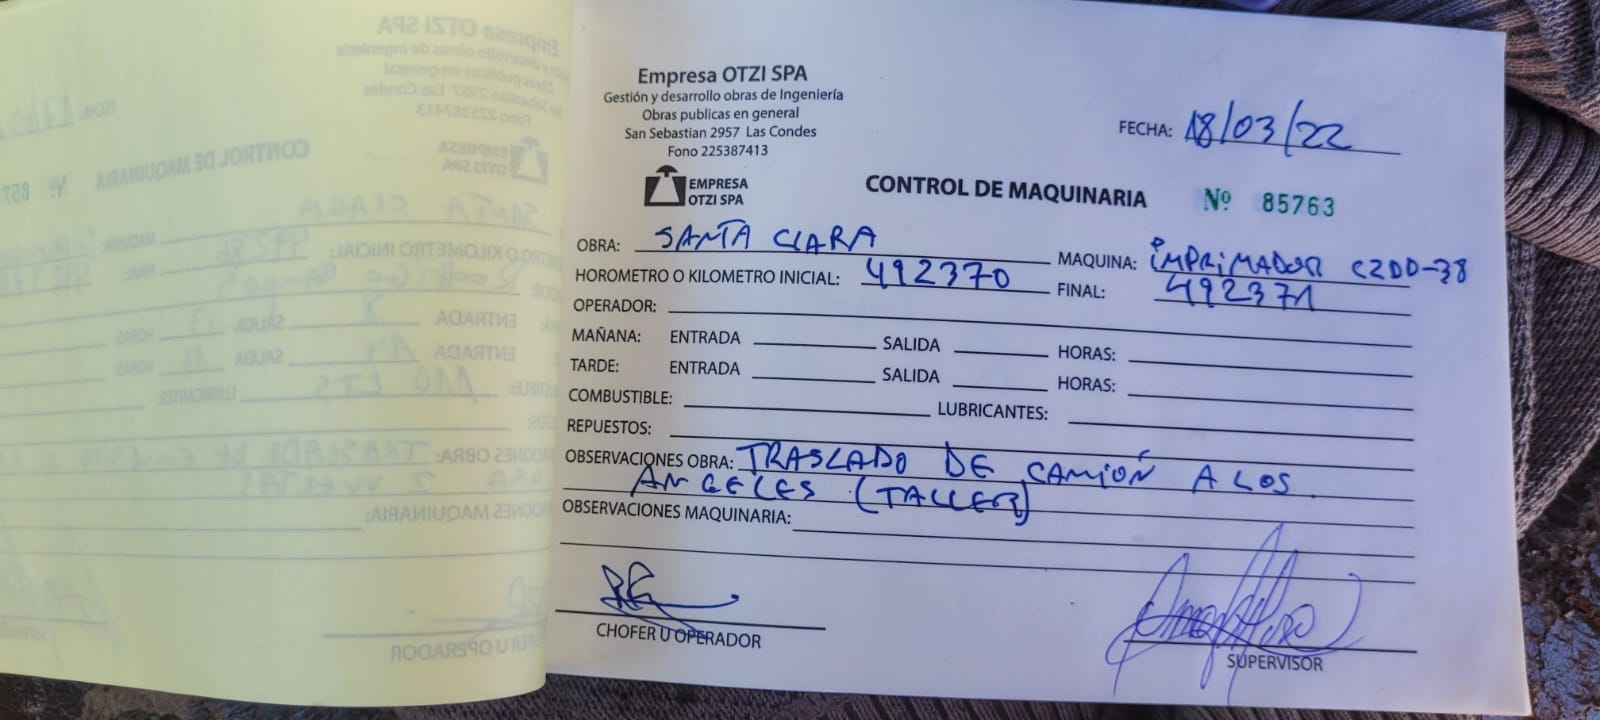 Empresa OTZI SPA
Gestión y desarrollo obras de Ingeniería
Obras publicas en general
San Sebastian 2957 Las Condes
Fono 225387413
EMPRESA
OTZI SPA
FECHA: 18/03/22
CONTROL DE MAQUINARIA Nº 85763
OBRA: SANTA CLARA MAQUINA: IMPRIMADOR CZDD-38
HOROMETRO O KILOMETRO INICIAL: 492370 FINAL: 492371
OPERADOR:
MAÑANA: ENTRADA SALIDA HORAS:
TARDE: ENTRADA SALIDA HORAS:
COMBUSTIBLE: LUBRICANTES:
REPUESTOS:
OBSERVACIONES OBRA: TRASLADO DE CAMIÓN A LOS
ANGELES (TALLER)
OBSERVACIONES MAQUINARIA:
CHOFER U OPERADOR
SUPERVISOR